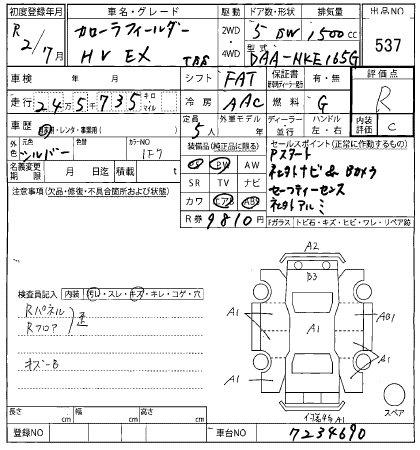 初度登録年月 車名・グレード 駆動 ドア数・形状 排気量 出品NO
R 2/7月 カローラフィールダー 2WD 4WD 5 DW 1,500cc 537
HV EX 型式 DAA-NKE165G
車検 年 月 シフト FAT 保証書 有・無 評価点
走行 24万5千735 キロ マイル 冷房 AAC 燃料 G R
車歴 自家・レンタ・事業用( ) 定員 5人 外車モデル 年 ディーラー 並行 ハンドル 左・右 内装評価 C
外色 元色 シルバー 色替 カラーNO 1F7
装備品(純正品に限る) セールスポイント(正常に作動するもの)
名義変更期限 月 日 積載 t
PS PW AW
SR TV ナビ
カワ エアB ABS
R券 9810円
Pスタート
ネxtナビ & Bカメラ
セーフティーセンス
ネxtアルミ
注意事項(欠品・修復・不具合箇所および状態)
Fガラス トビ石・キズ・ヒビ・ワレ・リペア跡
検査員記入 内装 汚レ・スレ・キズ・キレ・コゲ・穴
Rパネル
Rフロア
キズ-B
A2
B3
A1 A1 AB1
A1 A1
A1
スペア
長さ cm 幅 cm 高さ cm
登録NO 車台NO 7234690